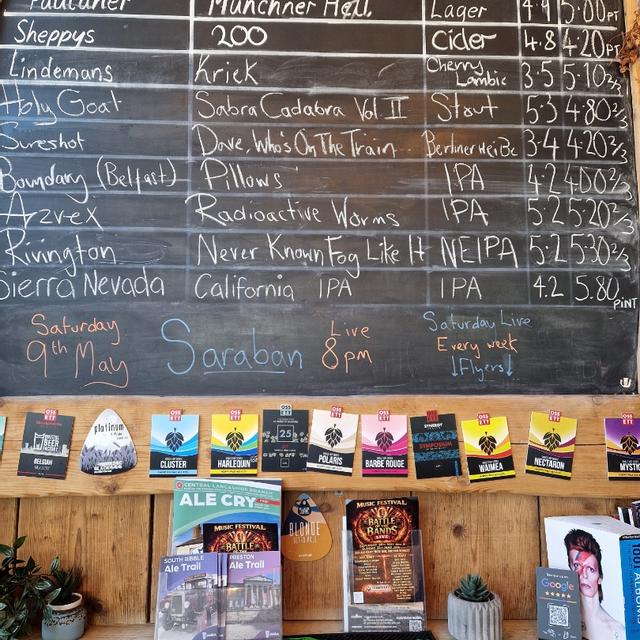 Paulaner Münchner Hell Lager 4.9 5.00PT
Sheppys 200 Cider 4.8 4.20PT
Lindemans Kriek Cherry Lambic 3.5 5.10⅔
Holy Goat Sabra Cadabra Vol II Stout 5.3 4.80⅔
Sureshot Dave, Who's On The Train Berliner Weiße 3.4 4.20⅔
Boundary (Belfast) Pillows IPA 4.2 4.00⅔
Azvex Radioactive Worms IPA 5.2 5.20⅔
Rivington Never Known Fog Like It NEIPA 5.2 5.30⅔
Sierra Nevada California IPA IPA 4.2 5.80 PINT
Saturday
9th May
Saraban
Live
8pm
Saturday Live
Every week
↓Flyers↓
BEER
FACTORY
BELGIAN
Platinum
BLACKEDGE
OSSETT
CLUSTER
OSSETT
HARLEQUIN
OSSETT
25
OSSETT
POLARIS
OSSETT
BARBE ROUGE
OSSETT
SYMPOSIUM
SYNERGY
WAIMEA
OSSETT
NECTARON
OSSETT
MYSTIC
CENTRAL LANCASHIRE
ALE CRY
MUSIC FESTIVAL
BATTLE
SOUTH RIBBLE
Ale Trail
PRESTON
Ale Trail
BLONDE
MUSIC FESTIVAL
BATTLE
OF THE
BANDS
Google